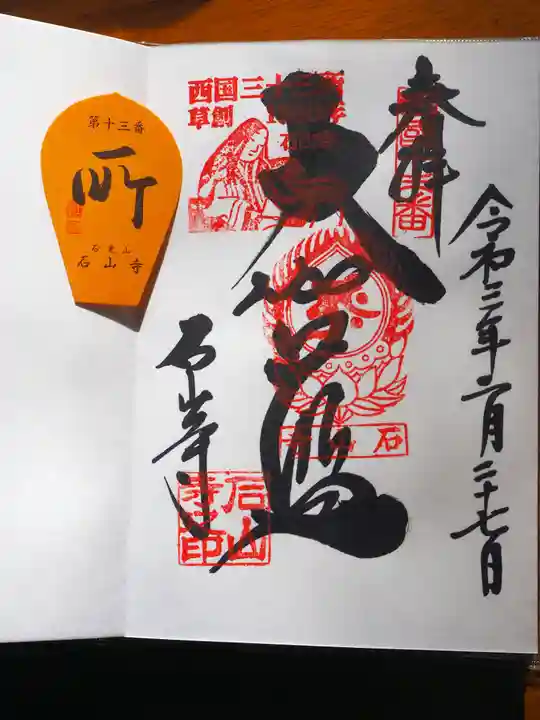 奉拝
令和三年二月二十七日
大伽藍
石山寺
石山
寺印
西国三十三
草創
石
第十三番
所
石光山
石山寺